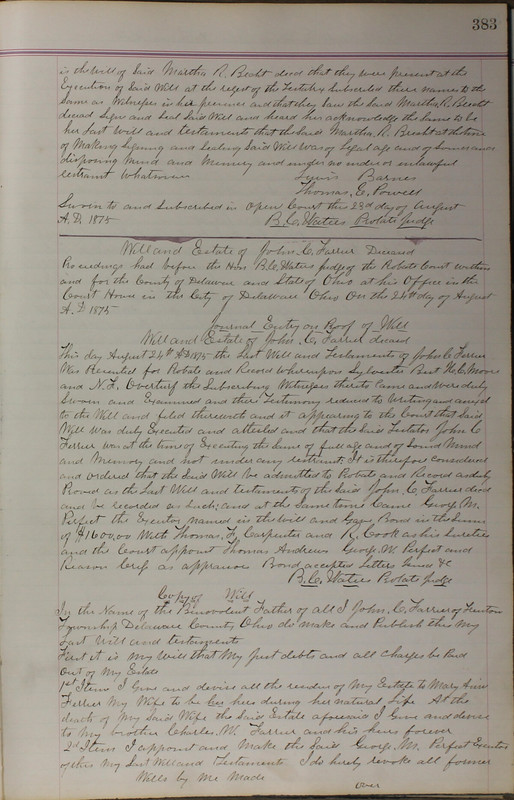 383
is the will of said Martha R. Brecht decd that they were present at the
Execution of said Will at the request of the Testatrix Subscribed there names to the
same as Witnesses in her presence and that they saw the said Martha R. Brecht
decead Sign and Seal said Will and heard her acknowledge the same to be
her Last Will and testament that the said Martha R. Brecht at the time
of Making Signing and Sealing said Will was of Legal age and of Sound and
disposing Mind and Memory and under no undue or unlawful
restraint whatever
Lewis Barnes
Thomas E. Powell
Sworn to and Subscribed in Open Court this 23d day of August
A.D. 1875 B.C. Waters Probate Judge
Will and Estate of John C. Farrier Deceasd
Proceedings had before the Hon B.C. Waters Judge of the Probate Court within
and for the County of Delaware and State of Ohio at his Office in the
Court House in the City of Delaware Ohio On the 24th day of August
A.D 1875
Journal Entry on Proof of Will
Will and Estate of John C. Farrier decead
This day August 24th AD 1875 the Last Will and Testament of John C Ferrier
Was Presented for Probate and Record whereupon Sylvester H. C. Moore
and N. F. Overturf the Subscribing Witnesses thereto Came and Were duly
Sworn and Examined and their Testimony reduced to Writing and anexed
to the Will and filed therewith and it appearing to the Court that Said
Will Was duly Executed and attested and that the said Testator John C
Ferrier was at the time of Executing the Same of full age and of Sound Mind
and Memory and not under any restraint It is therefore Considered
and ordered that the Said Will be admitted to Probate and Record as duly
Proved as the Last Will and testament of the said John C. Farrier decd
and be recorded as Such: and at the Same time Came George M.
Perfect the Executor named in the Will and Gave Bond in the Sum
of $1600.00 With Thomas F. Carpenter and R. Cook as his Sureties
and the Court appoint Thomas Andrews George M. Perfect and
Reason as appraisers Bond accepted Letters Issued &c
B.C. Waters Probate Judge
Copy of Will
In the Name of the Benevolent Father of all I John C. Farrier of Trenton
Township Delaware County Ohio do make and Publish this My
Last Will and testament
First it is My Will that My just debts and all Charges be Paid
Out of My Estate
1st Item I Give and devise all the residue of My Estate to Mary Ann
Ferrier My Wife to be hers during her natural Life At the
death of My Said Wife the Said Estate aforesaid I Give and devise
to My brother Charles W. Farrier and his heirs forever
2d Item I appoint and Make the Said George M. Perfect Executor
of this My Last Will and Testament I do hereby revoke all former
Wills by Me Made
over